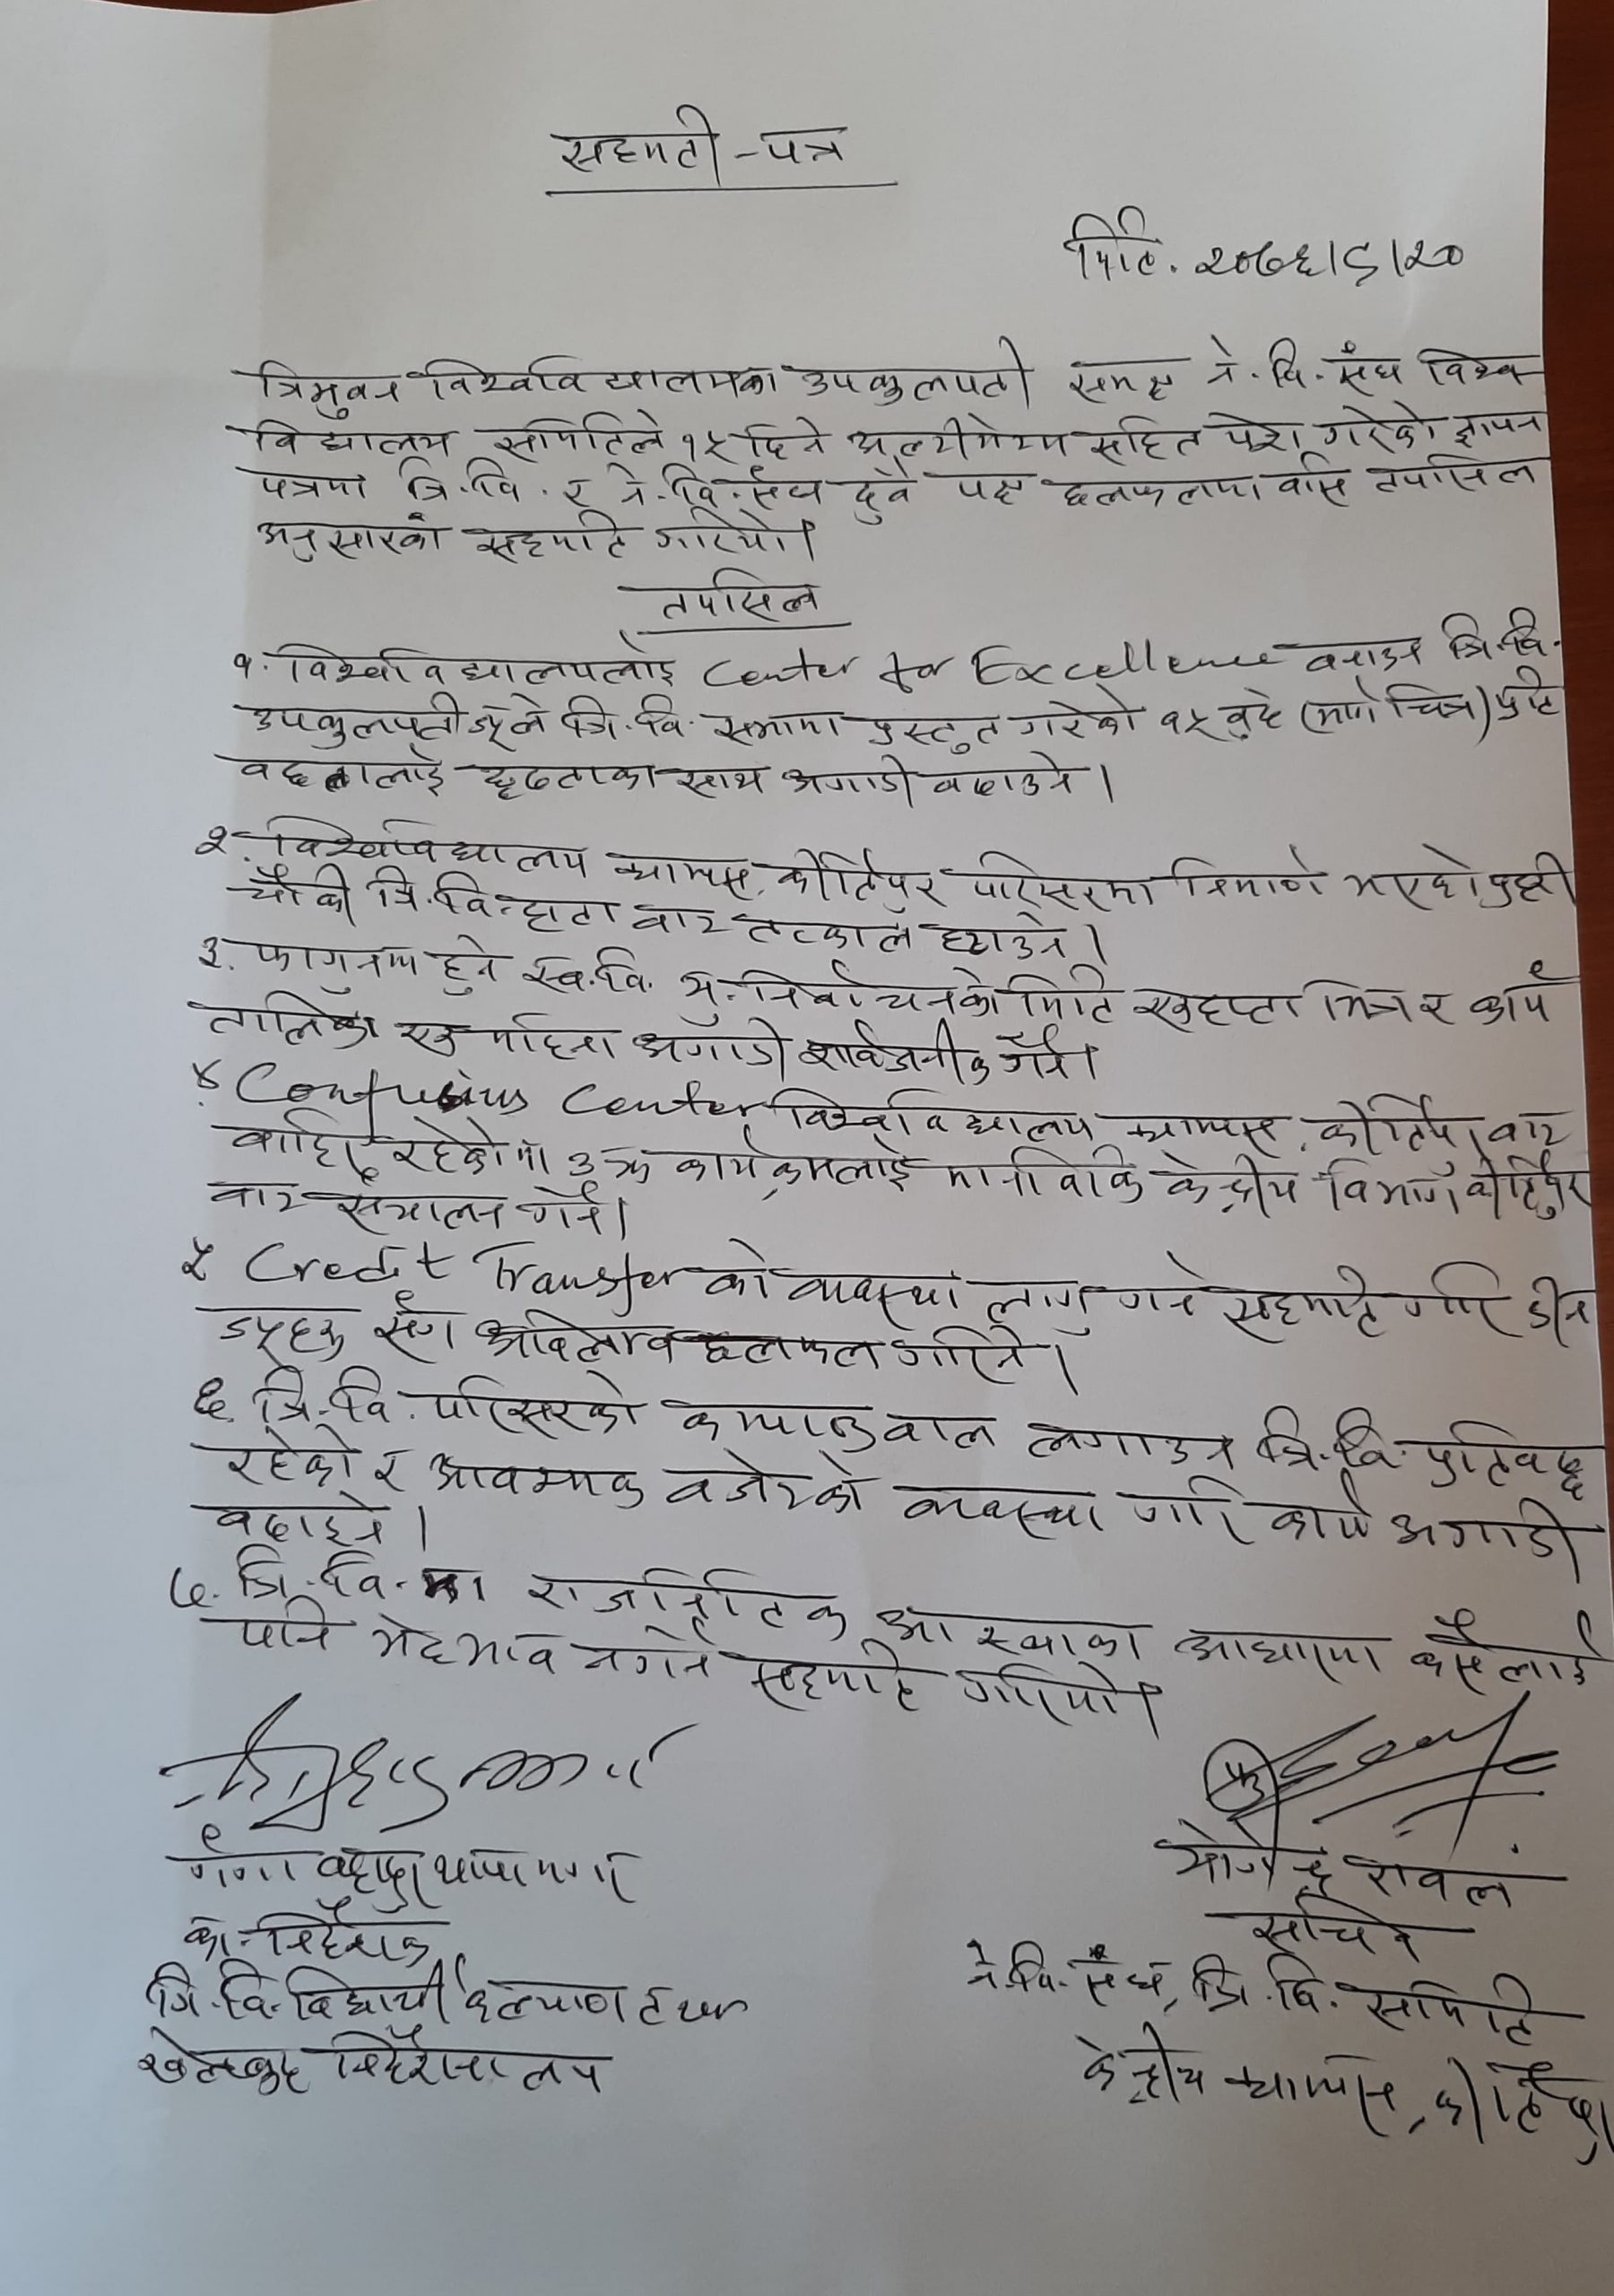 सहमती-पत्र
मिति. २०७६।९।२०
त्रिभुवन विश्वविद्यालयका उपकुलपती समक्ष ने.वि.संघ विश्व
विद्यालय समितिले १५ दिने अल्टीमेटम सहित पेश गरेको ज्ञापन
पत्रमा त्रि.वि. र ने.वि.संघ दुवै पक्ष छलफलमा बसि तपसिल
अनुसारको सहमति गरियो।
तपसिल
१. विश्वविद्यालयलाई Center for Excellence बनाउन त्रि.वि.
उपकुलपतीज्यूले त्रि.वि. सभामा प्रस्तुत गरेको १५ बुदे (मार्ग चित्र) प्रति
वद्दतालाई दृढताका साथ अगाडी बढाउने।
२. विश्वविद्यालय क्याम्पस, कीर्तिपुर परिसरमा निर्माण भएको प्रहरी
चौकी त्रि.वि. हाता बाट तत्काल हटाउने।
३. फागुनमा हुने स्व.वि. यु. निर्वाचनको मिति एकहप्ता भित्र र कार्य
तालिका एक महिना अगाडी सार्वजनीक गर्ने।
४. Confucius Center विश्वविद्यालय क्याम्पस, कीर्तिपुर बाट
बाहिर रहेकोमा उक्त कार्यक्रमलाई मानविकि केन्द्रीय विभाग कीर्तिपुर
बाट संचालन गर्ने।
५ Credit Transfer को व्यवस्था लागु गर्न सहमति गरि डीन
ज्यूहरु सँग अविलम्ब छलफल गरिने।
६. त्रि.वि. परिसरको कम्पाउवाल लगाउन त्रि.वि. प्रतिवद्द
रहेको र आवश्यक बजेटको व्यवस्था गरि कार्य अगाडी
बढाइने।
७. त्रि.वि. मा राजनितिक आस्थाका आधारमा कसैलाई
पनि भेदभाव नगर्ने सहमति गरियो।
गंगा बहादुर थापा मगर
का. निर्देशक
त्रि.वि. विद्यार्थी कल्याण तथा
खेलकुद निर्देशनालय
योगेन्द्र रावल
सचिव
ने.वि.संघ, त्रि.वि. समिति
केन्द्रीय क्याम्पस, कीर्तिपुर